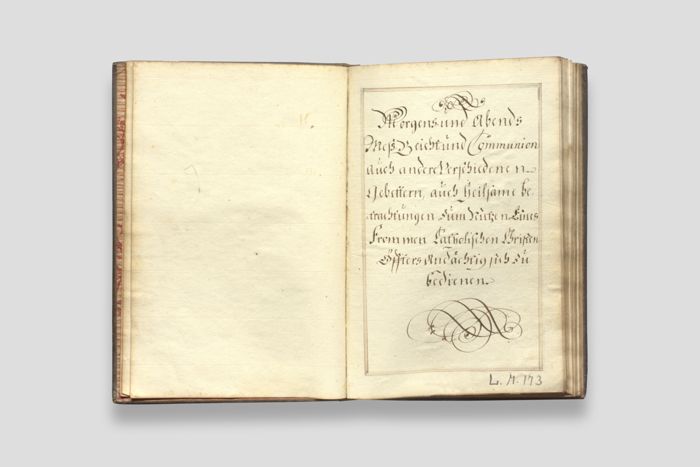 Morgens und Abends
Meß Beicht und Communion
auch andere Verschiedenen
Gebettern, auch heilsame be,
trachtungen zum Nutzen Eines
Frommen Catholischen Christen
Öffters Andächtig sich zu
bedienen.
L. M. 173